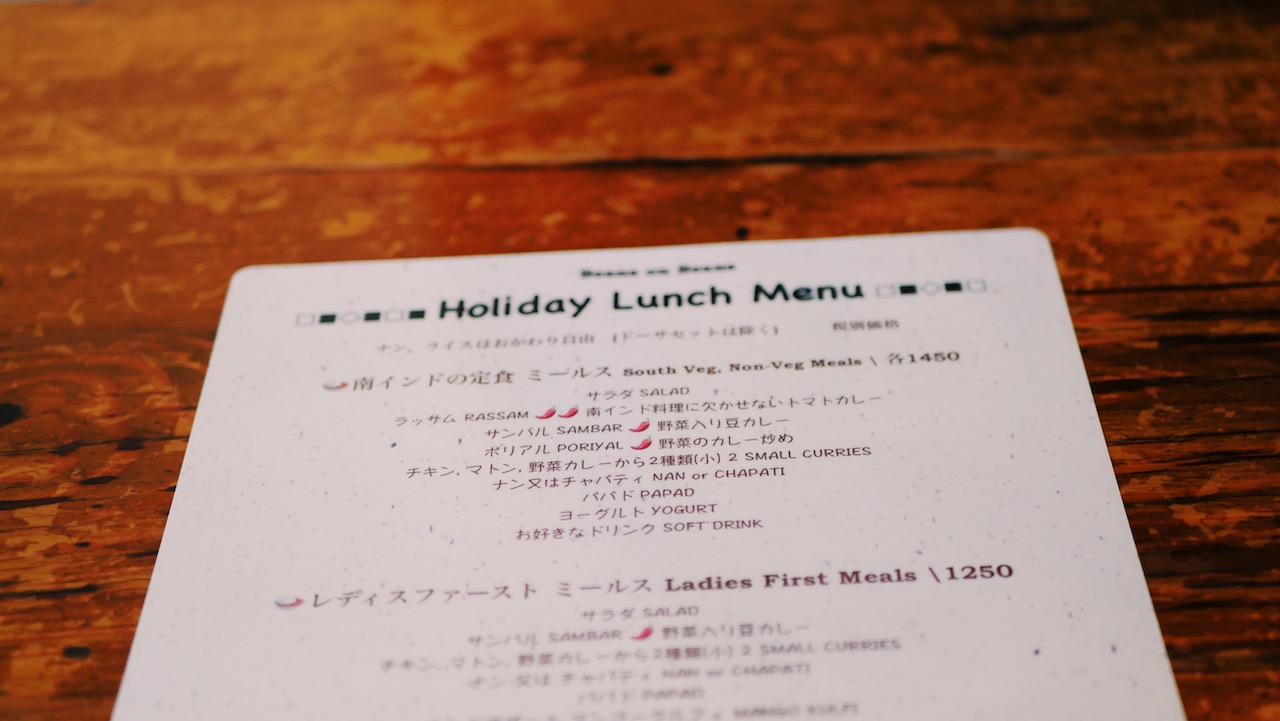 □■◇■□■ Holiday Lunch Menu □■◇■□
ナン、ライスはおかわり自由 (ドーサセットは除く) 税別価格
南インドの定食 ミールス South Veg, Non-Veg Meals \ 各1450
サラダ SALAD
ラッサム RASSAM 🌶🌶 南インド料理に欠かせないトマトカレー
サンバル SAMBAR 🌶 野菜入り豆カレー
ポリアル PORIYAL 🌶 野菜のカレー炒め
チキン, マトン, 野菜カレーから2種類(小) 2 SMALL CURRIES
ナン又はチャパティ NAN or CHAPATI
パパド PAPAD
ヨーグルト YOGURT
お好きなドリンク SOFT DRINK
レディスファースト ミールス Ladies First Meals \1250
サラダ SALAD
サンバル SAMBAR 🌶 野菜入り豆カレー
チキン, マトン, 野菜カレーから2種類(小) 2 SMALL CURRIES
ナン 又は チャパティ NAN or CHAPATI
パパド PAPAD
MANGO KULFI